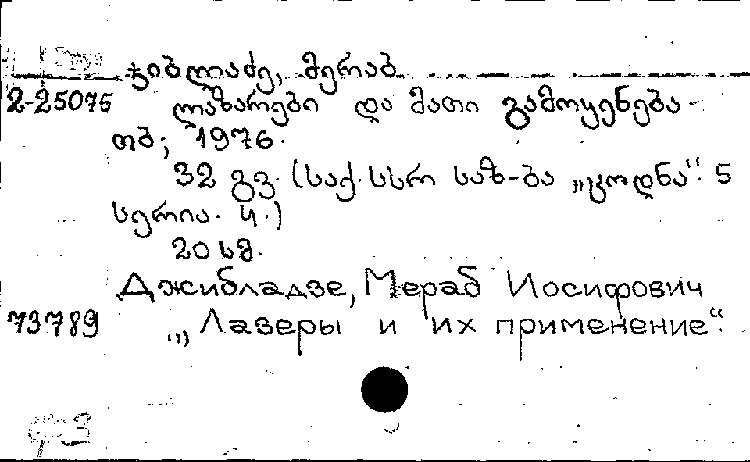 ჯიბლაძე, მერაბ
2-25075 ლაზარები და მათი გამოყენება.
თბ; 1976.
32 გვ. (საქ. სსრ საზ-ბა „ცოდნა“. 5
სერია. 4.)
20 სმ.
Джибладзе, Мераб Иосифович
73789 „Лазеры и их применение“.